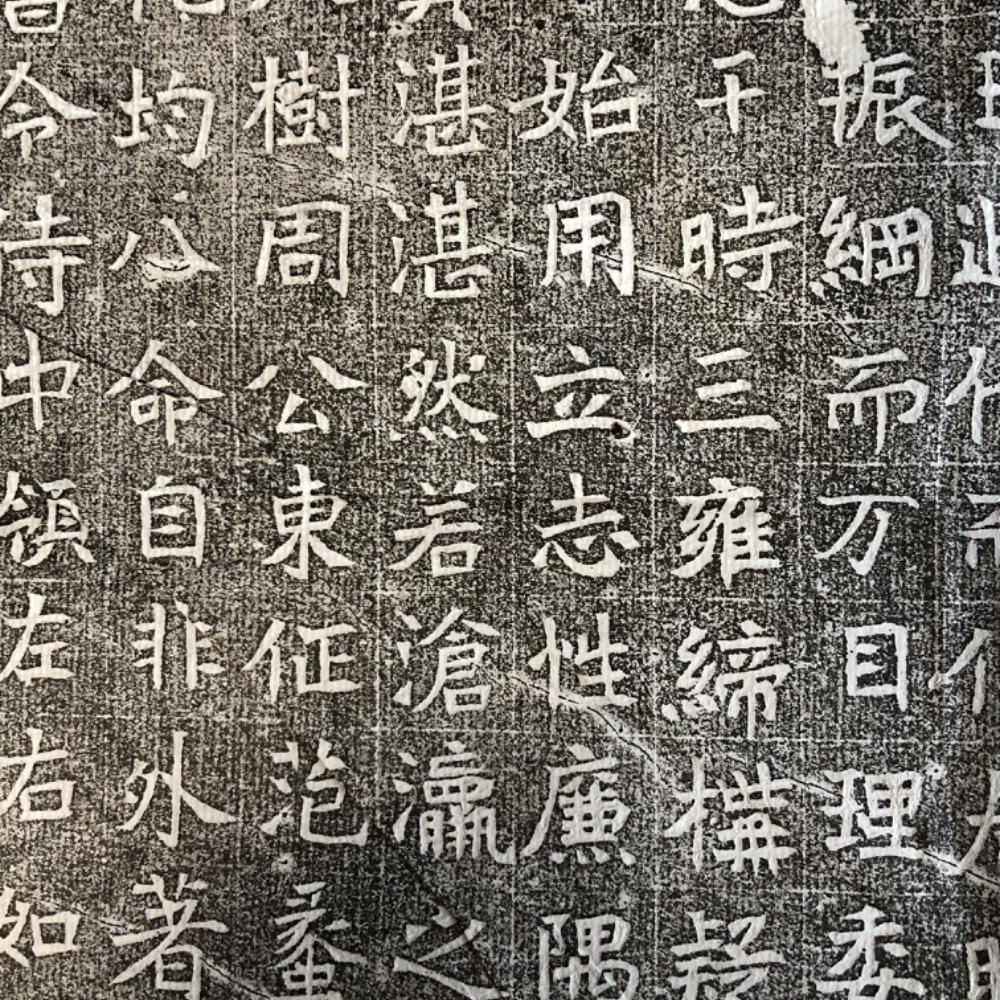 振綱而万目理委
于時三雍締構疑
始用立志性廉隅
湛湛然若滄瀛之
樹周公東征范蠡
均公命自非外著
令侍中領左右如